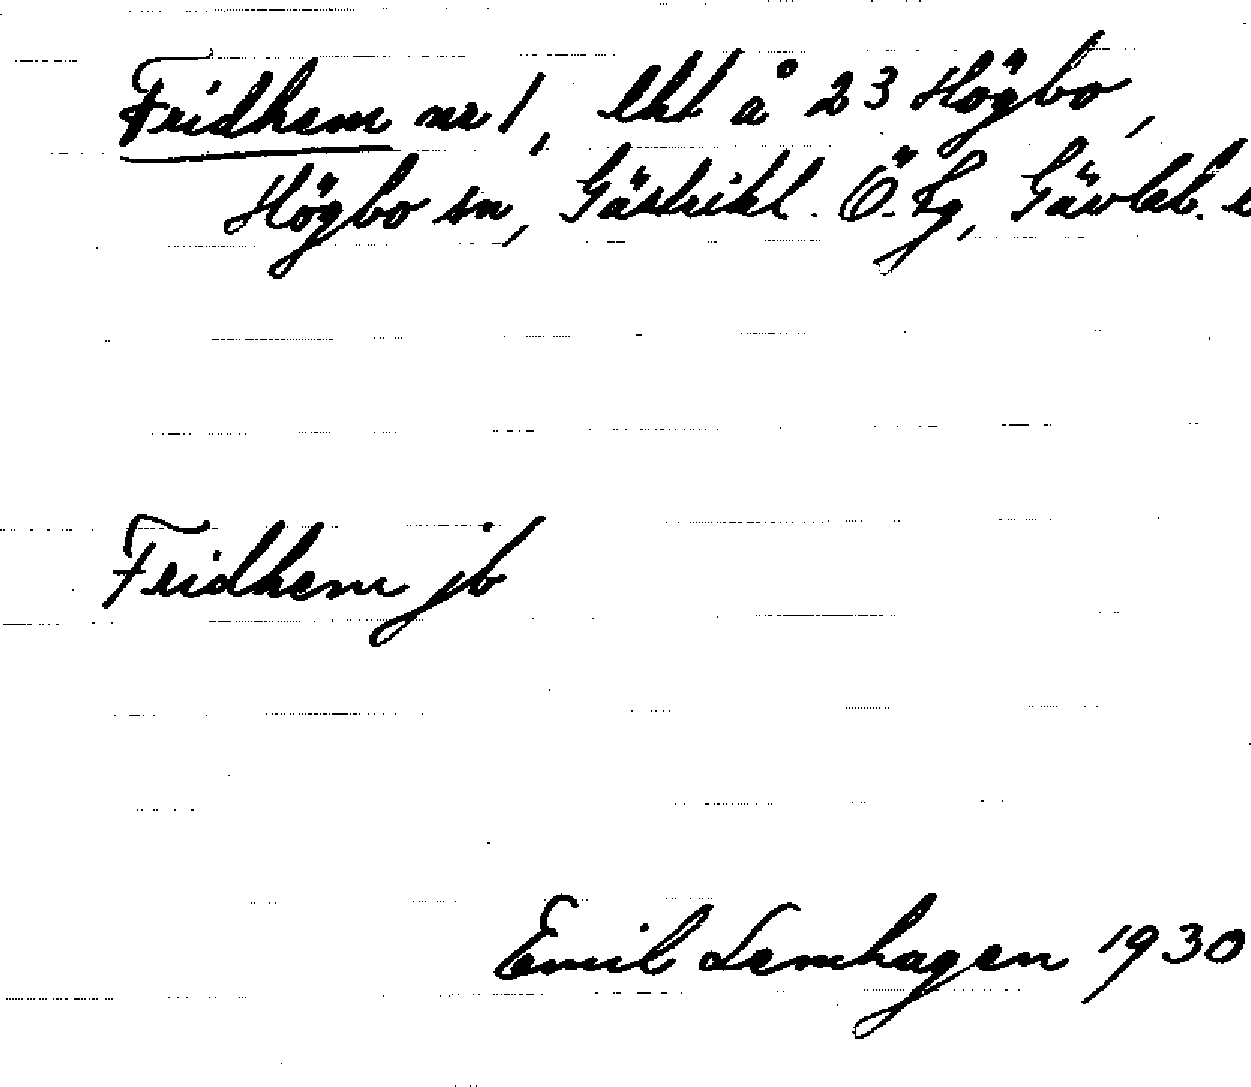 Fridhem nr 1, lht å 23 Högbo,
Högbo sn, Gästrikl. Ö. tg, Gävleb.
Fridhem jb
Emil Lemhagen 1930